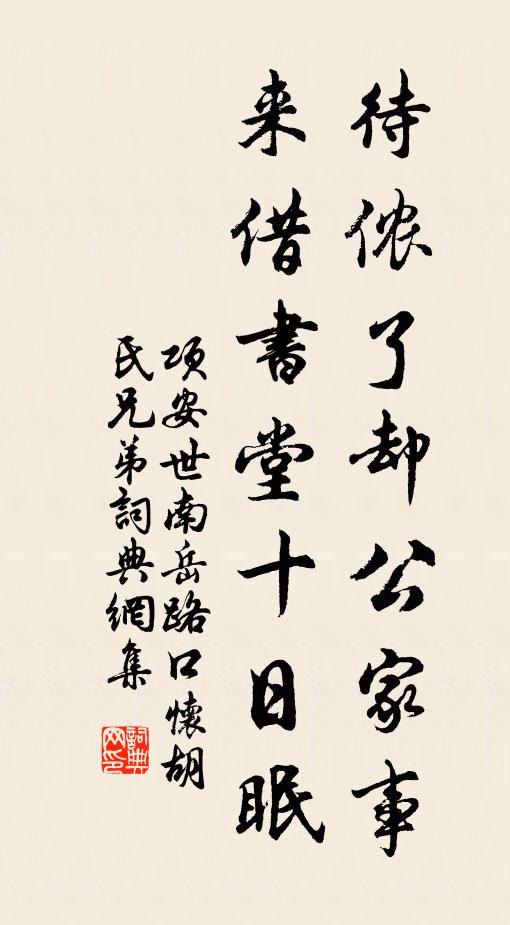 待侬了却公家事
来借書堂十日眠
项安世南岳路口懷胡
民兄弟詞典網集
詞典网印